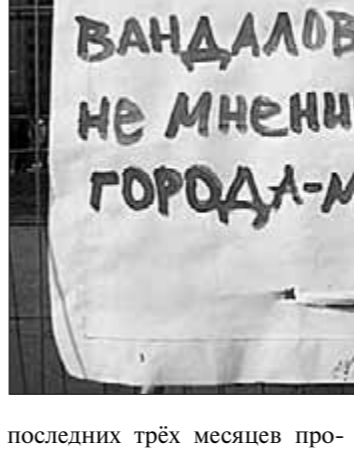 ВАНДАЛОВ
не мнени
ГОРОДА-М
последних трёх месяцев про-